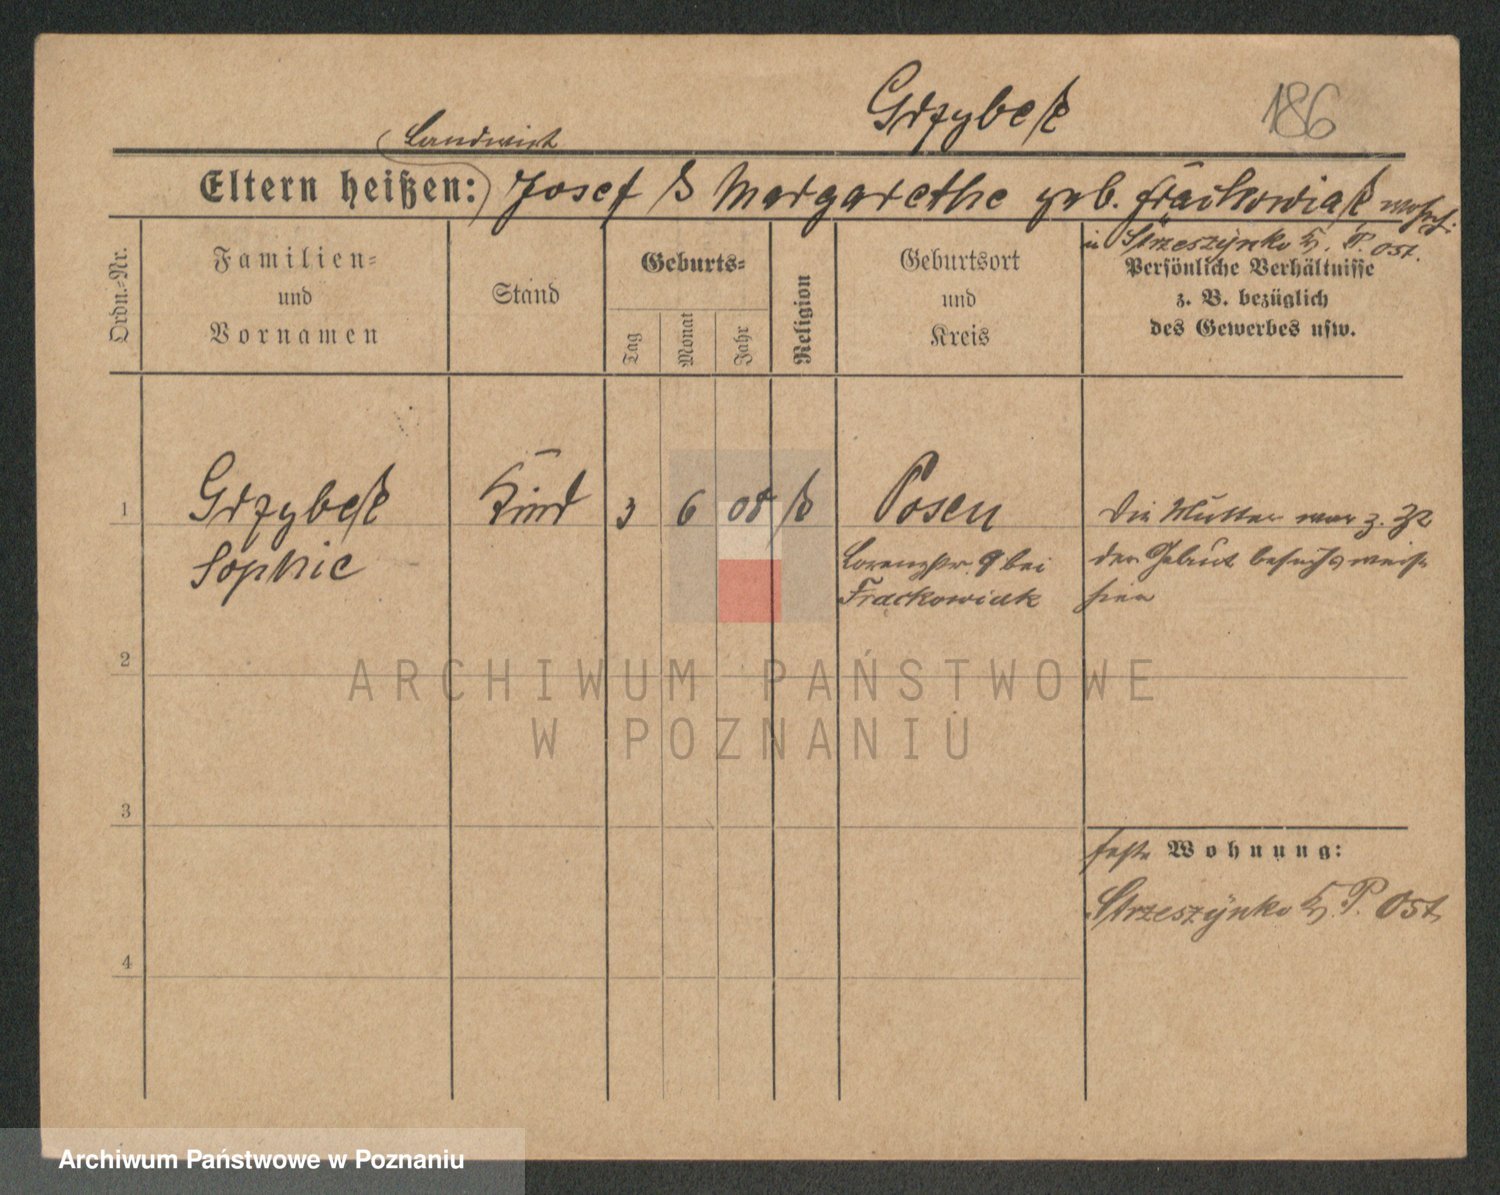 Grzybek
186
Landwirt
Eltern heißen: Josef & Margarethe geb. Frackowiak wohnh.
in Strzeszynko Kr. P. Ost.
Ordn.-Nr.
Familien-
und
Vornamen
Stand
Geburts-
Tag
Monat
Jahr
Religion
Geburtsort
und
Kreis
Persönliche Verhältnisse
z. B. bezüglich
des Gewerbes usw.
1 Grzybek Kind 3 6 08 k Posen Die Mutter war z. Zt
Sophie Lorenzstr. 9 bei der Geburt besuchsweise
Frackowiak hier
2
3
feste Wohnung:
Strzeszynko Kr. P. Ost.
4
ARCHIWUM PAŃSTWOWE
W POZNANIU
Archiwum Państwowe w Poznaniu